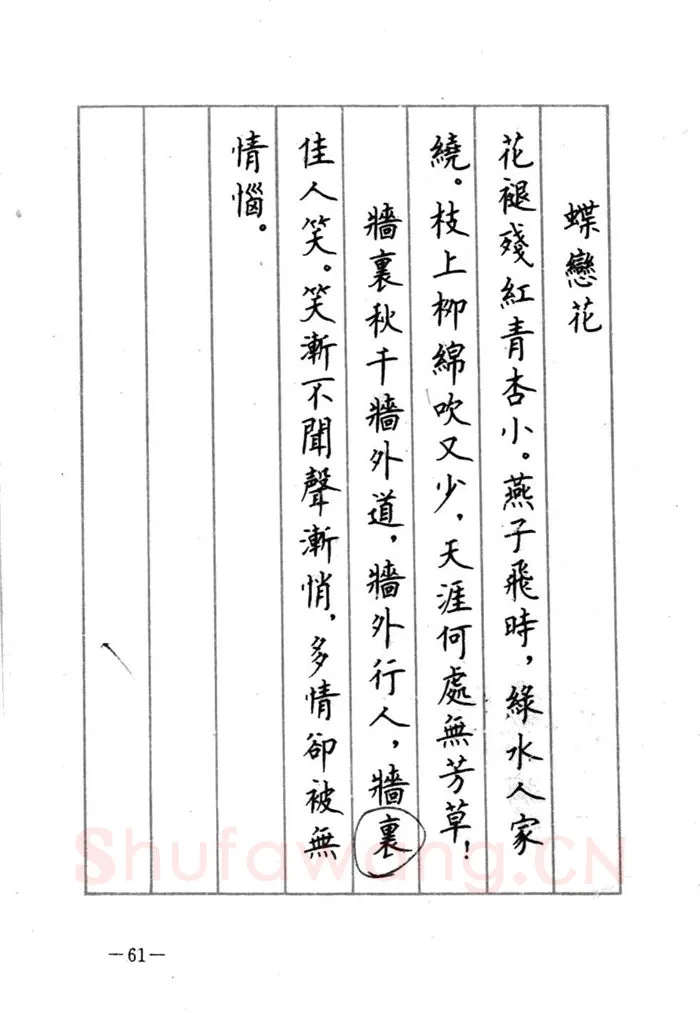 蝶戀花
花褪殘紅青杏小。燕子飛時，綠水人家
繞。枝上柳綿吹又少，天涯何處無芳草！
牆裏秋千牆外道，牆外行人，牆裏
佳人笑。笑漸不聞聲漸悄，多情卻被無
情惱。
Shufawang.CN
—61—